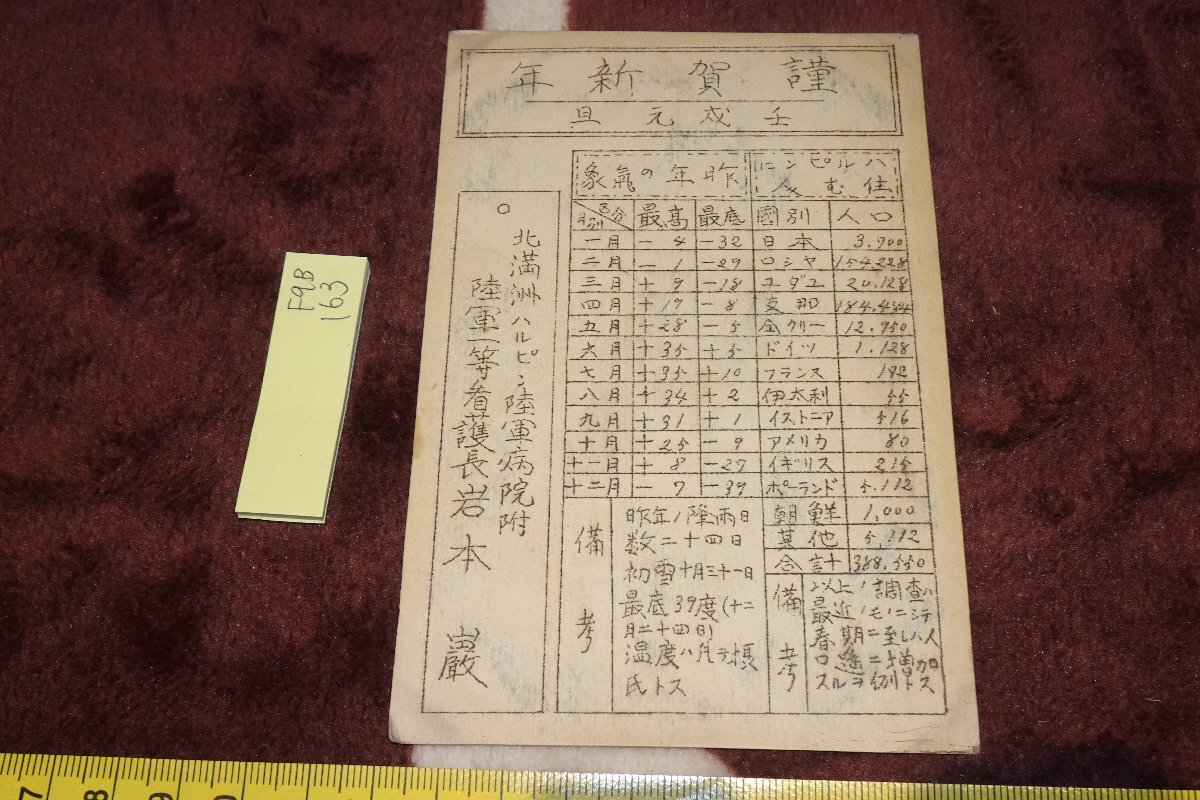 謹賀新年
壬戌元旦
ハルピンニ
住む人
國別 人口
日本 3.900
ロシヤ 154.228
ユダユ 20.128
支那 184.484
仝クリー 12.950
ドイツ 1.128
フランス 192
伊太利 55
イストニア 516
アメリカ 80
イギリス 215
ポーランド 5.112
朝鮮 1,000
其他 5,312
合計 388.550
備考
以上ノ調査ハ
最近ノモノニシテ
春期ニ至レハ人
口ハ
昨年の氣象
月別 区分 最高 最底
一月 -4 -32
二月 -1 -29
三月 +9 -18
四月 +17 -8
五月 +28 -5
六月 +35 +5
七月 +35 +10
八月 +34 +2
九月 +31 +1
十月 +25 -9
十一月 +8 -27
十二月 -7 -39
備考
昨年ノ降雨日
数二十四日
初雪十月三十一日
最底39度(十二
月二十四日)
温度ハ凡テ摂
氏トス
○北満洲ハルピン陸軍病院附
陸軍一等看護長岩本巌
F9B
163